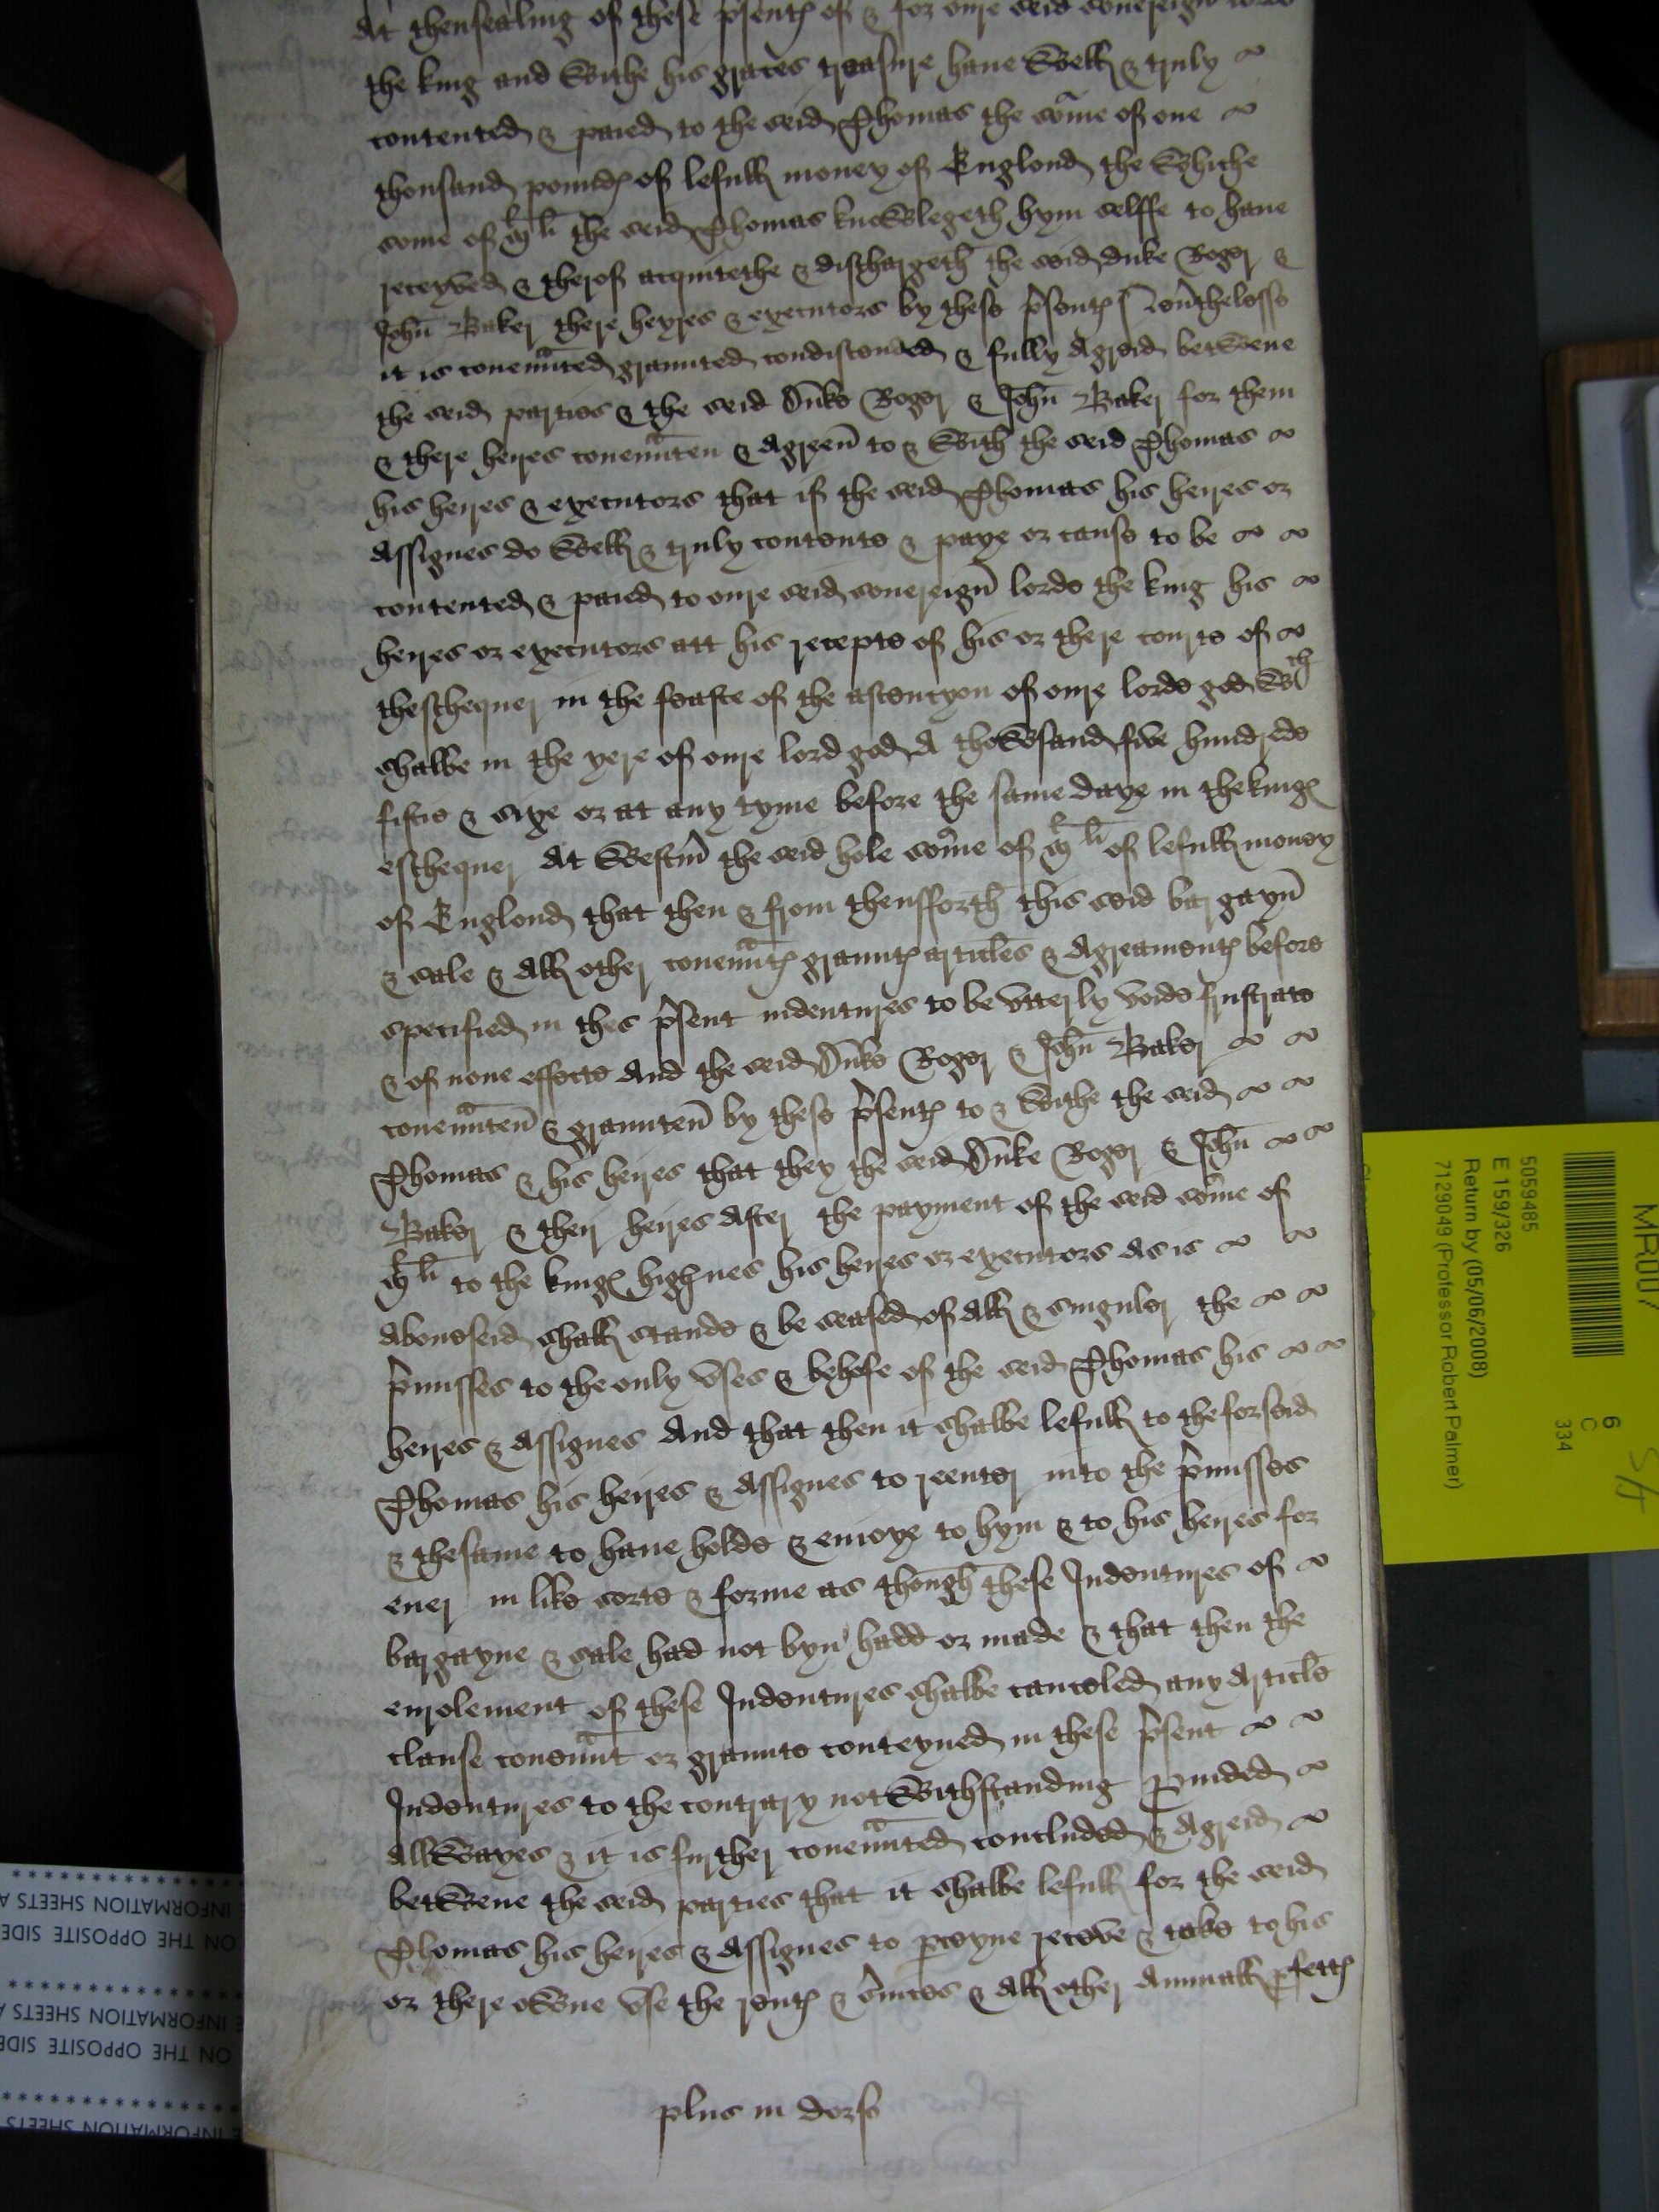 At thensealing of these p̃sentꝭ of & for oure seid souereign lorde
the king and withe his graces treasure haue well & truly
contented & paied to the seid Thomas the som̃e of one
thousand poundꝭ of lefull money of Englond the whiche
some of Mˡ li the seid Thomas knowlegeth hym selffe to haue
receyved & therof acquitethe & dischargeth the seid duke Roger &
John Baker there heyres & executors by these p̃sentꝭ / neũthelesse
it is couenᵃnted graunted condiscended & fully Agreid betwene
the seid parties & the seid Duke Roger & John Baker for them
& there heires couenᵃnten & Agreen to & with the seid Thomas
his heires & executors that if the seid Thomas his heires or
Assignes do well & truly contente & paye or cause to be
contented & paied to oure seid souereign lorde the king his
heires or executors att his recepte of his or there courte of
theschequer in the feaste of the ascencyon of oure lorde god wᵗʰ
shalbe in the yere of oure lord god A thowsand five hundrede
fiftie & sixe or at any tyme before the same daye in the kingꝭ
eschequer At Westm̃ the seid hole som̃e of Mˡ li of lefull money
of Englond that then & from thensfforth this seid bargayn
& sale & All other couenᵃntꝭ grauntꝭ articles & Agreamentꝭ before
specified in thes p̃sent indentures to be vtterly voide frustrate
& of none effecte And the seid Duke Roger & John Baker
couenᵃnten & graunten by these p̃sentꝭ to & withe the seid
Thomas & his heires that they the seid Duke Roger & John
Baker & their heires After the payment of the seid som̃e of
Mˡ li to the kingꝭ highnes his heires or executors As is
Aboueseid shall stande & be seased of All & singuler the
p̃misses to the only vses & behofe of the seid Thomas his
heires & Assignes And that then it shalbe lefull to the forseid
Thomas his heires & Assignes to reenter into the p̃misses
& the same to haue holde & enioye to hym & to his heires for
euer in like sorte & forme as though these Indentures of
bargayne & sale had not byn hadd or made & that then the
enrolement of these Indentures shalbe canceled any Article
clause couenᵃnt or graunte conteyned in these p̃sent
Indentures to the contrary notwithstanding ꝓuided
Allwayes & it is further couenᵃnted concluded & Agreid
betwene the seid parties that it shalbe lefull for the seid
Thomas his heires & Assignes to ꝑceyue receve & take to his
or there owne vse the rentꝭ & s̃uices & All other Annuall ꝓfettꝭ
plus in dorso
MR007
6
C
334
5059485
E 159/326
Return by (05/06/2008)
7129049 (Professor Robert Palmer)
INFORMATION SHEETS A
ON THE OPPOSITE SIDE
INFORMATION SHEETS A
ON THE OPPOSITE SIDE
INFORMATION SHEETS